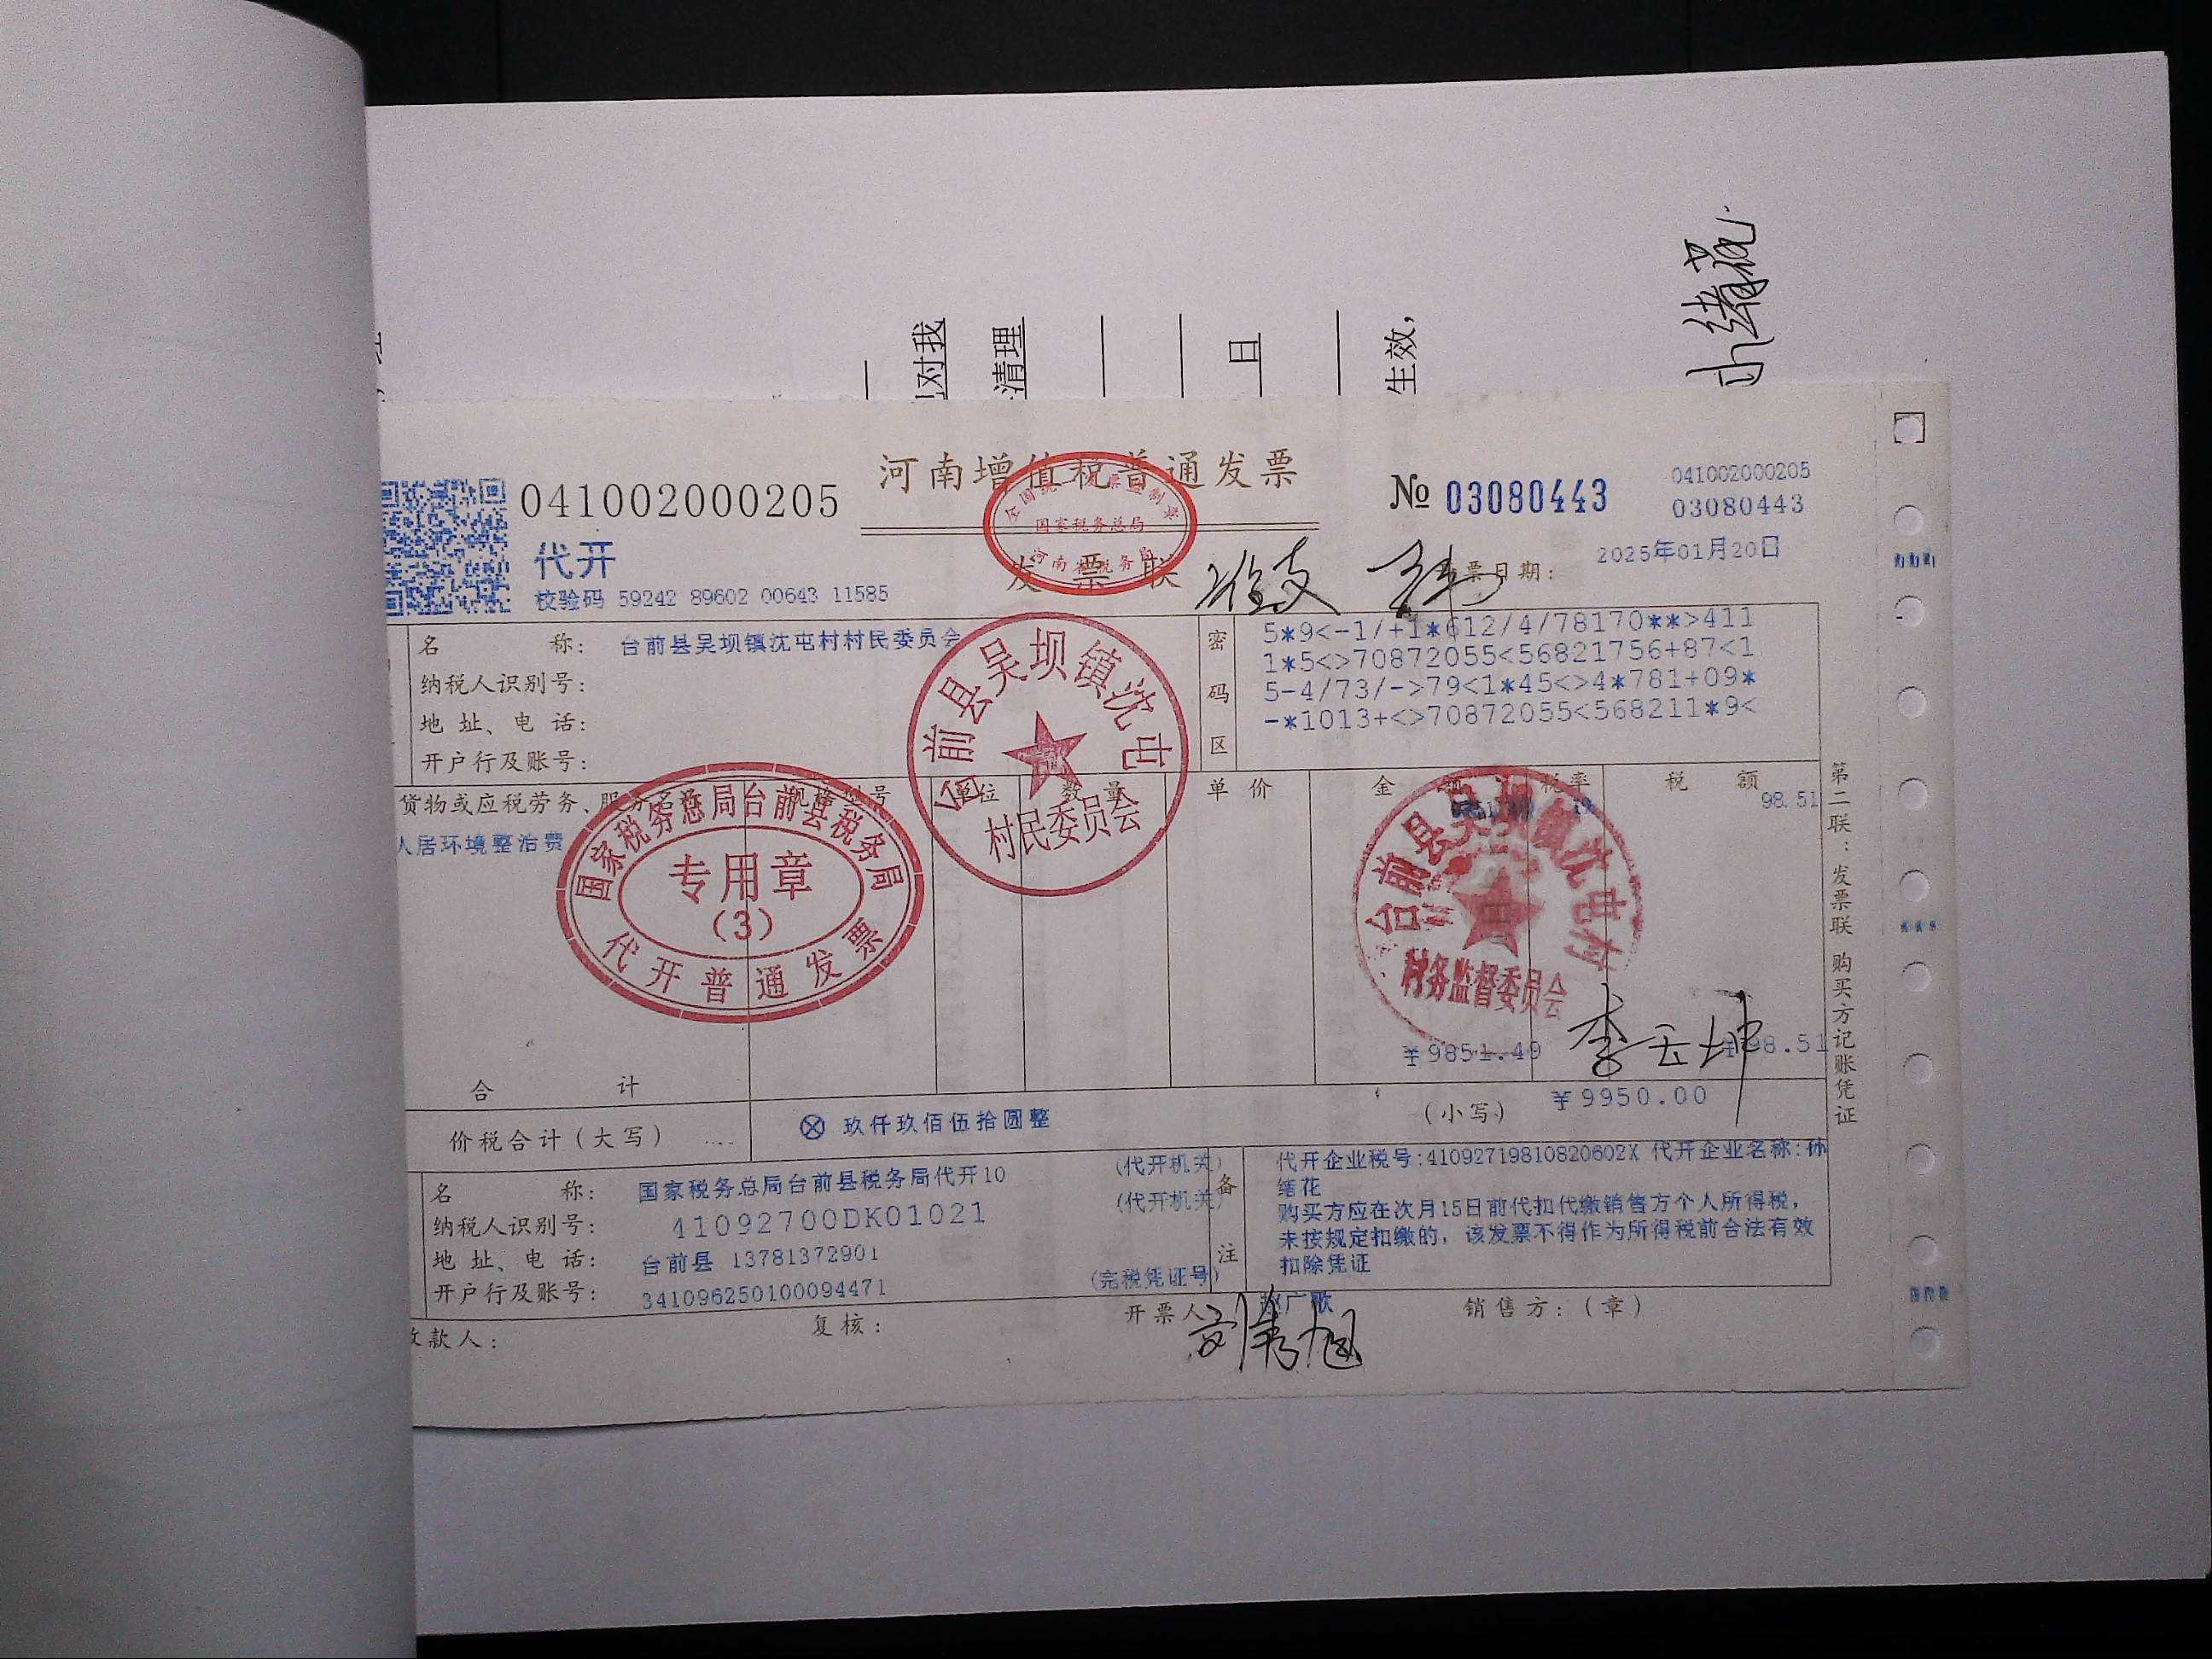 对我
清理
日
生效，
河南增值税普通发票
发票联
全国统一发票监制章
国家税务总局
河南省税务局
041002000205
№ 03080443
041002000205
03080443
代开
校验码 59242 89602 00643 11585
票日期： 2025年01月20日
准支
名称： 台前县吴坝镇沈屯村村民委员会
纳税人识别号：
地址、电话：
开户行及账号：
密码区
5*9<-1/+1*612/4/78170**>411
1*5<>70872055<56821756+87<1
5-4/73/->79<1*45<>4*781+09*
-*1013+<>70872055<568211*9<
货物或应税劳务、服务名称 规格型号 单位 数量 单价 金额 税率 税额
人居环境整治费 98.51
台前县吴坝镇沈屯
村民委员会
国家税务总局台前县税务局
专用章
(3)
代开普通发票
台前县吴坝镇沈屯村
村务监督委员会
合计 ¥9851.49 ¥98.51
价税合计（大写） ⊗ 玖仟玖佰伍拾圆整 （小写） ¥9950.00
名称： 国家税务总局台前县税务局代开10 (代开机关)
纳税人识别号： 41092700DK01021 (代开机关)
地址、电话： 台前县 13781372901
开户行及账号： 341096250100094471 (完税凭证号)
备注
代开企业税号:41092719810820602X 代开企业名称:孙
绪花
购买方应在次月15日前代扣代缴销售方个人所得税，
未按规定扣缴的，该发票不得作为所得税前合法有效
扣除凭证
款人： 复核： 开票人 赵广歌 销售方：（章）
第二联：发票联 购买方记账凭证